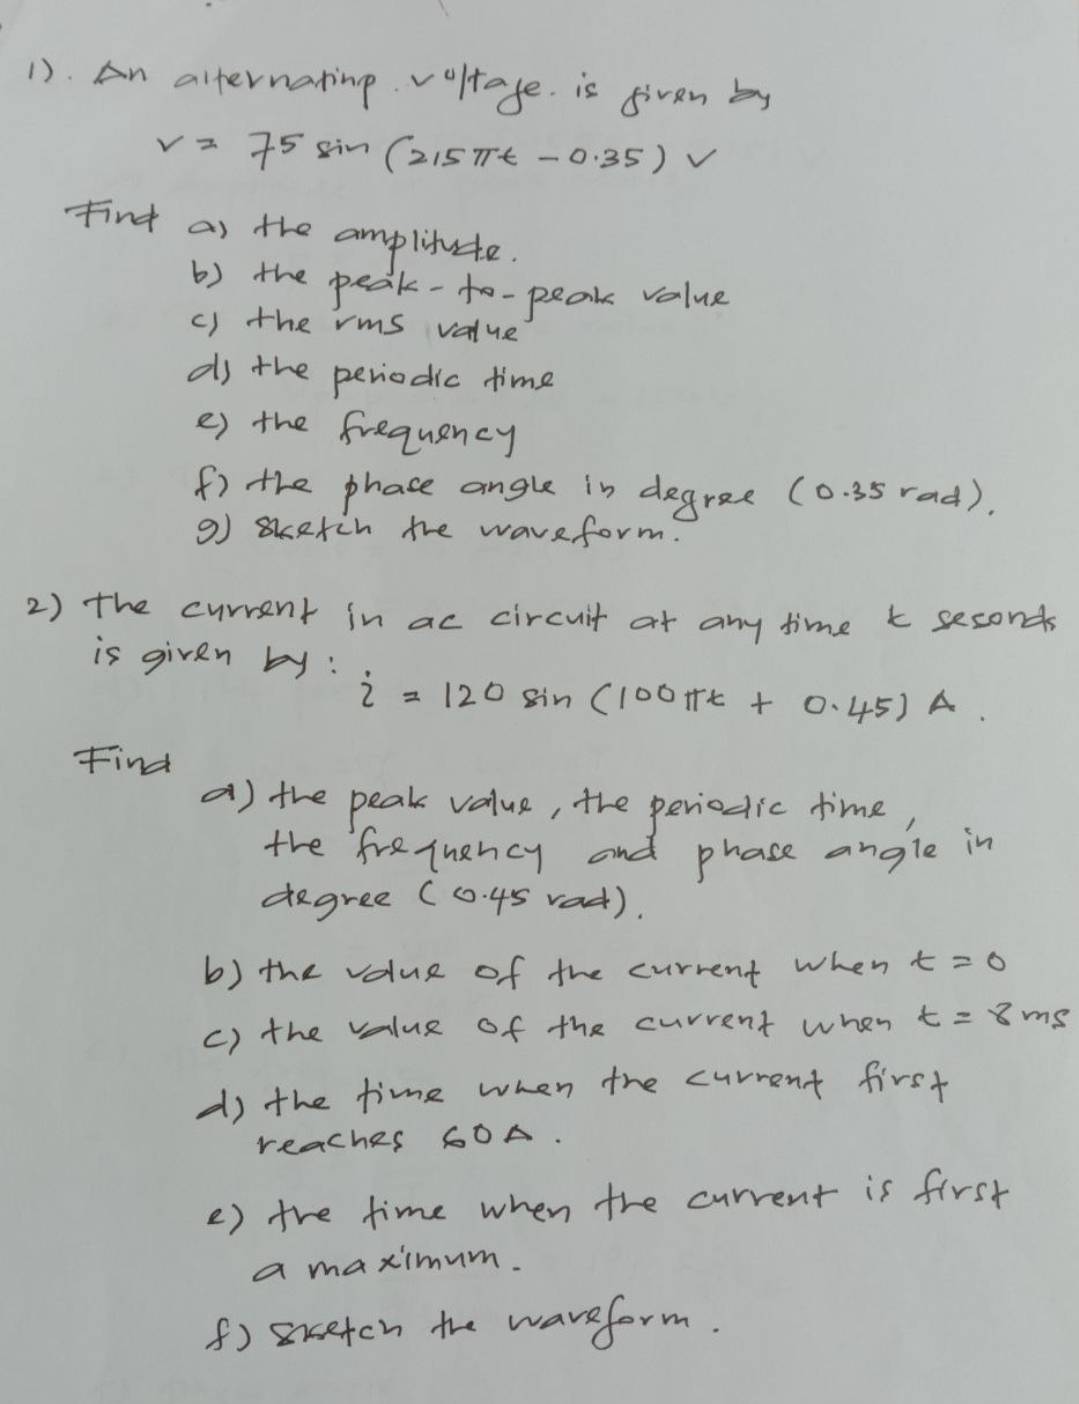 1). An alternating. voltage. is given by
v = 75 sin (215πt - 0.35) V
Find a) the amplitude.
b) the peak-to-peak value
c) the rms value
d) the periodic time
e) the frequency
f) the phase angle in degree (0.35 rad).
g) Sketch the waveform.
2) The current in ac circuit at any time t sesonds
is given by:
i = 120 sin (100πt + 0.45) A.
Find
a) the peak value, the periodic time,
the frequency and phase angle in
degree (0.45 rad).
b) the value of the current when t=0
c) the value of the current when t = 8ms
d) the time when the current first
reaches 60A.
e) the time when the current is first
a maximum.
f) Sketch the waveform.